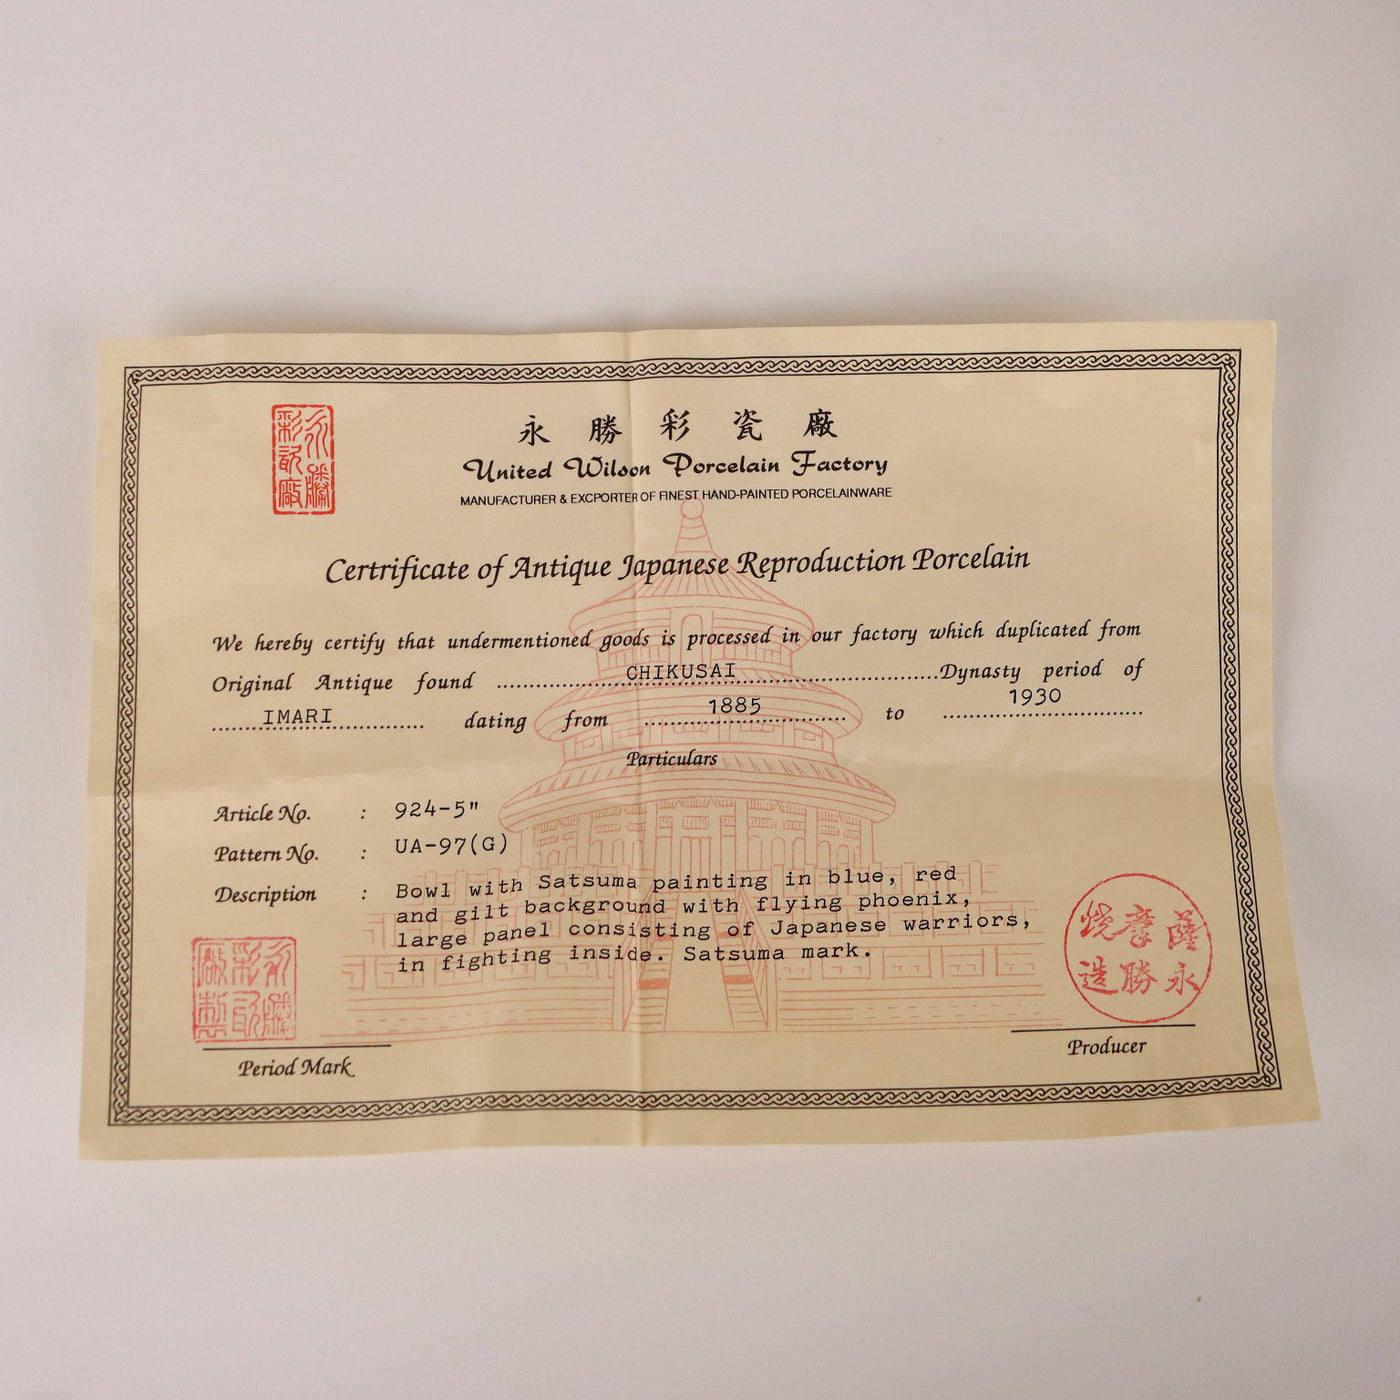 永勝彩瓷廠
United Wilson Porcelain Factory
MANUFACTURER & EXCPORTER OF FINEST HAND-PAINTED PORCELAINWARE
Certrificate of Antique Japanese Reproduction Porcelain
We hereby certify that undermentioned goods is processed in our factory which duplicated from
Original Antique found ........CHIKUSAI........Dynasty period of
........IMARI........ dating from ........1885........ to ........1930........
Particulars
Article No. : 924-5"
Pattern No. : UA-97(G)
Description : Bowl with Satsuma painting in blue, red
and gilt background with flying phoenix,
large panel consisting of Japanese warriors,
in fighting inside. Satsuma mark.
Period Mark
薩摩燒
永勝造
Producer